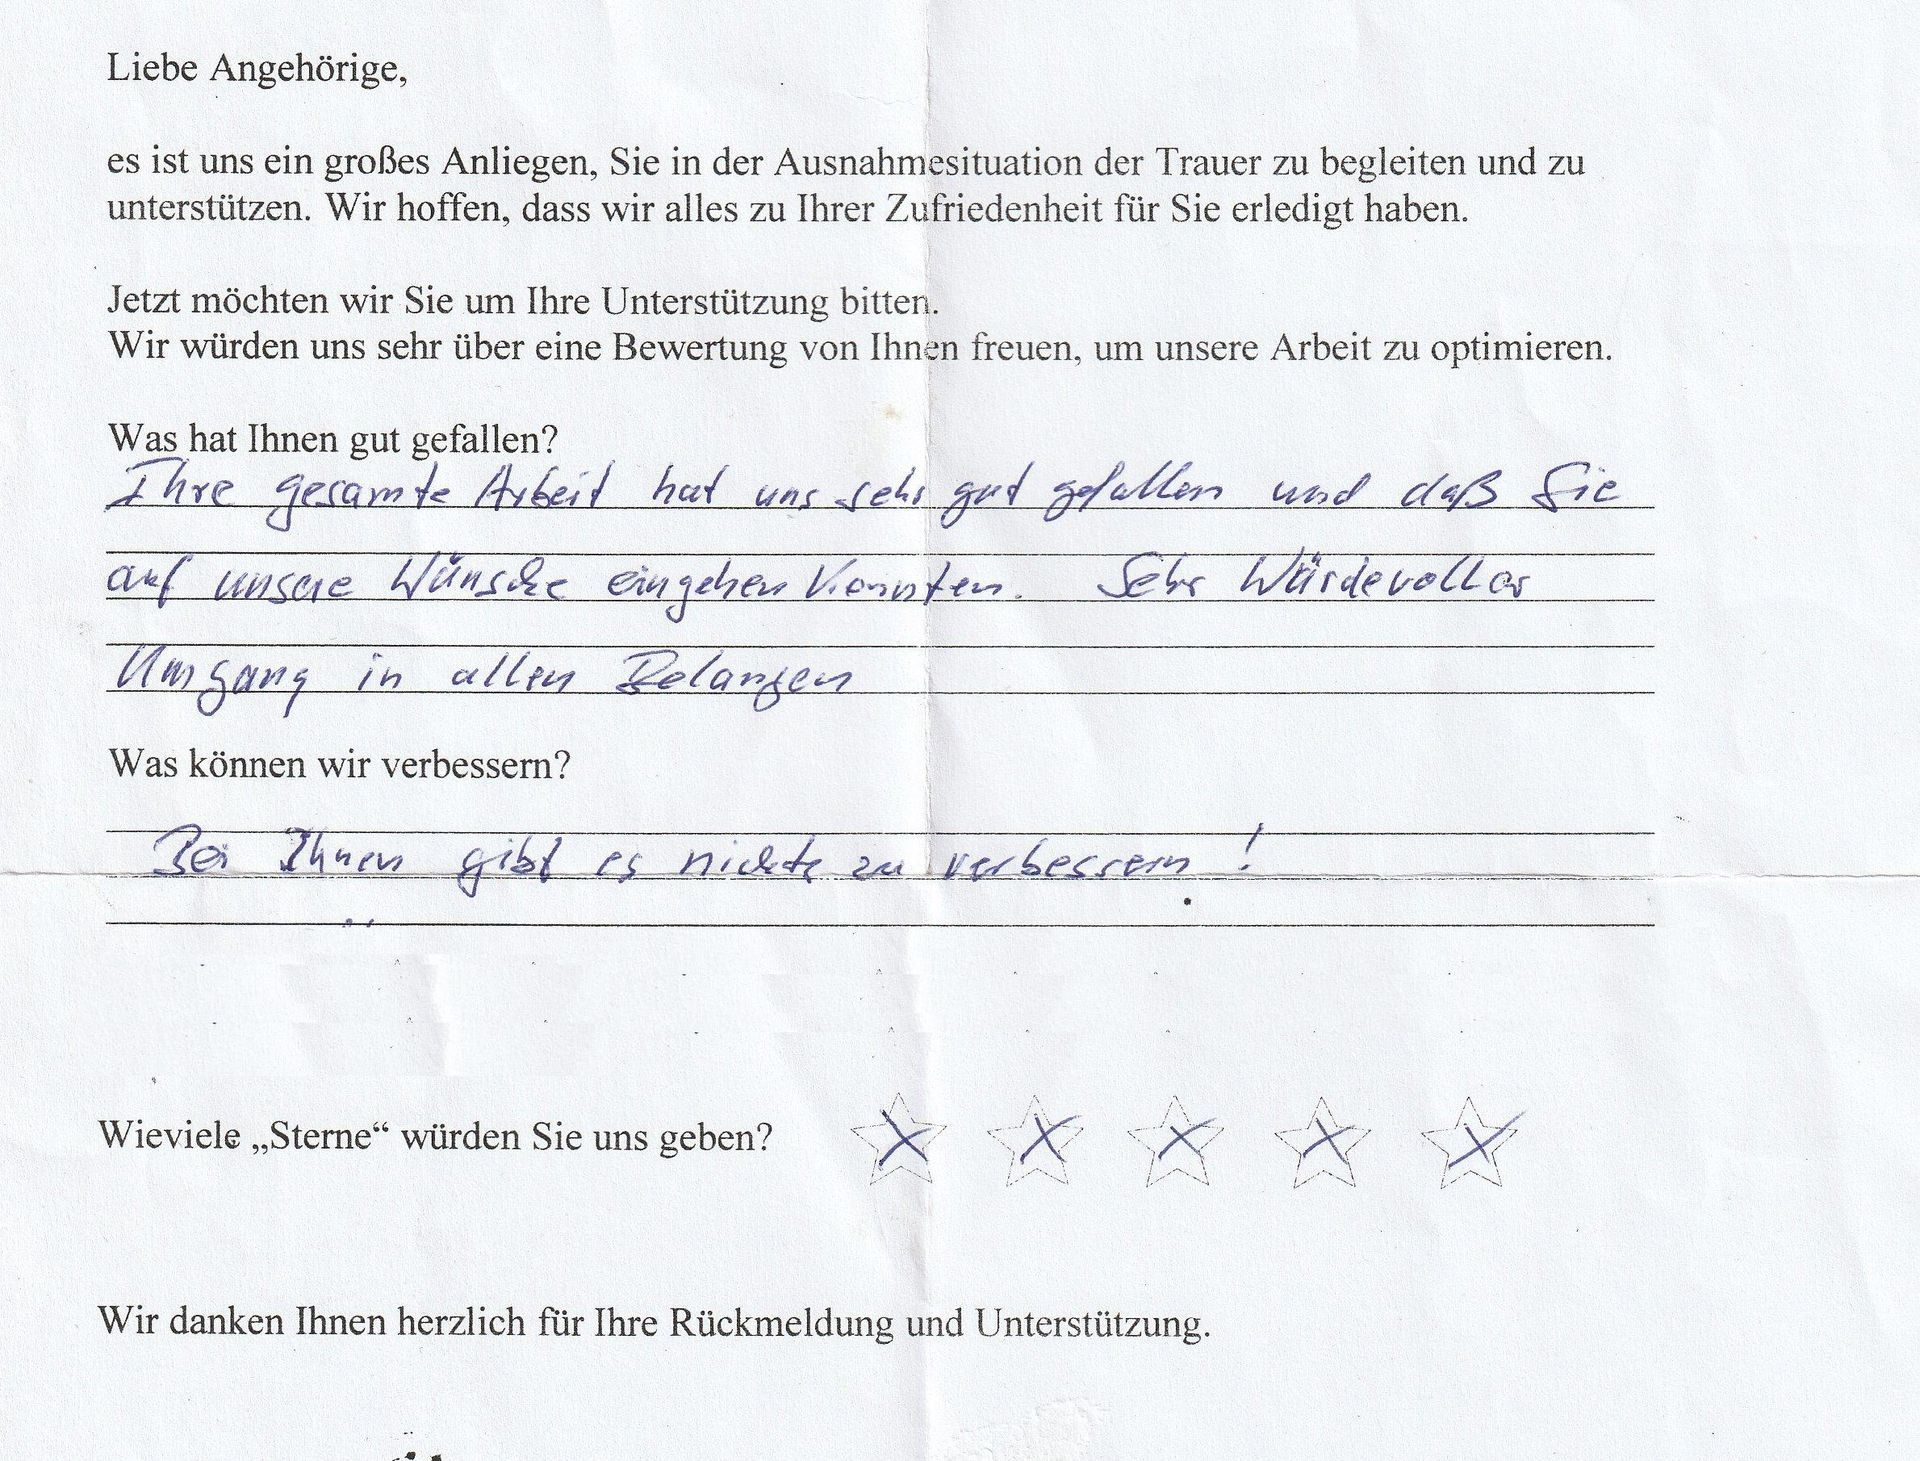 Liebe Angehörige,
es ist uns ein großes Anliegen, Sie in der Ausnahmesituation der Trauer zu begleiten und zu
unterstützen. Wir hoffen, dass wir alles zu Ihrer Zufriedenheit für Sie erledigt haben.
Jetzt möchten wir Sie um Ihre Unterstützung bitten.
Wir würden uns sehr über eine Bewertung von Ihnen freuen, um unsere Arbeit zu optimieren.
Was hat Ihnen gut gefallen?
Ihre gesamte Arbeit hat uns sehr gut gefallen und daß Sie
auf unsere Wünsche eingehen konnten. Sehr Würdevoller
Umgang in allen Belangen
Was können wir verbessern?
Bei Ihnen gibt es nichts zu verbessern!
Wieviele „Sterne“ würden Sie uns geben?
Wir danken Ihnen herzlich für Ihre Rückmeldung und Unterstützung.